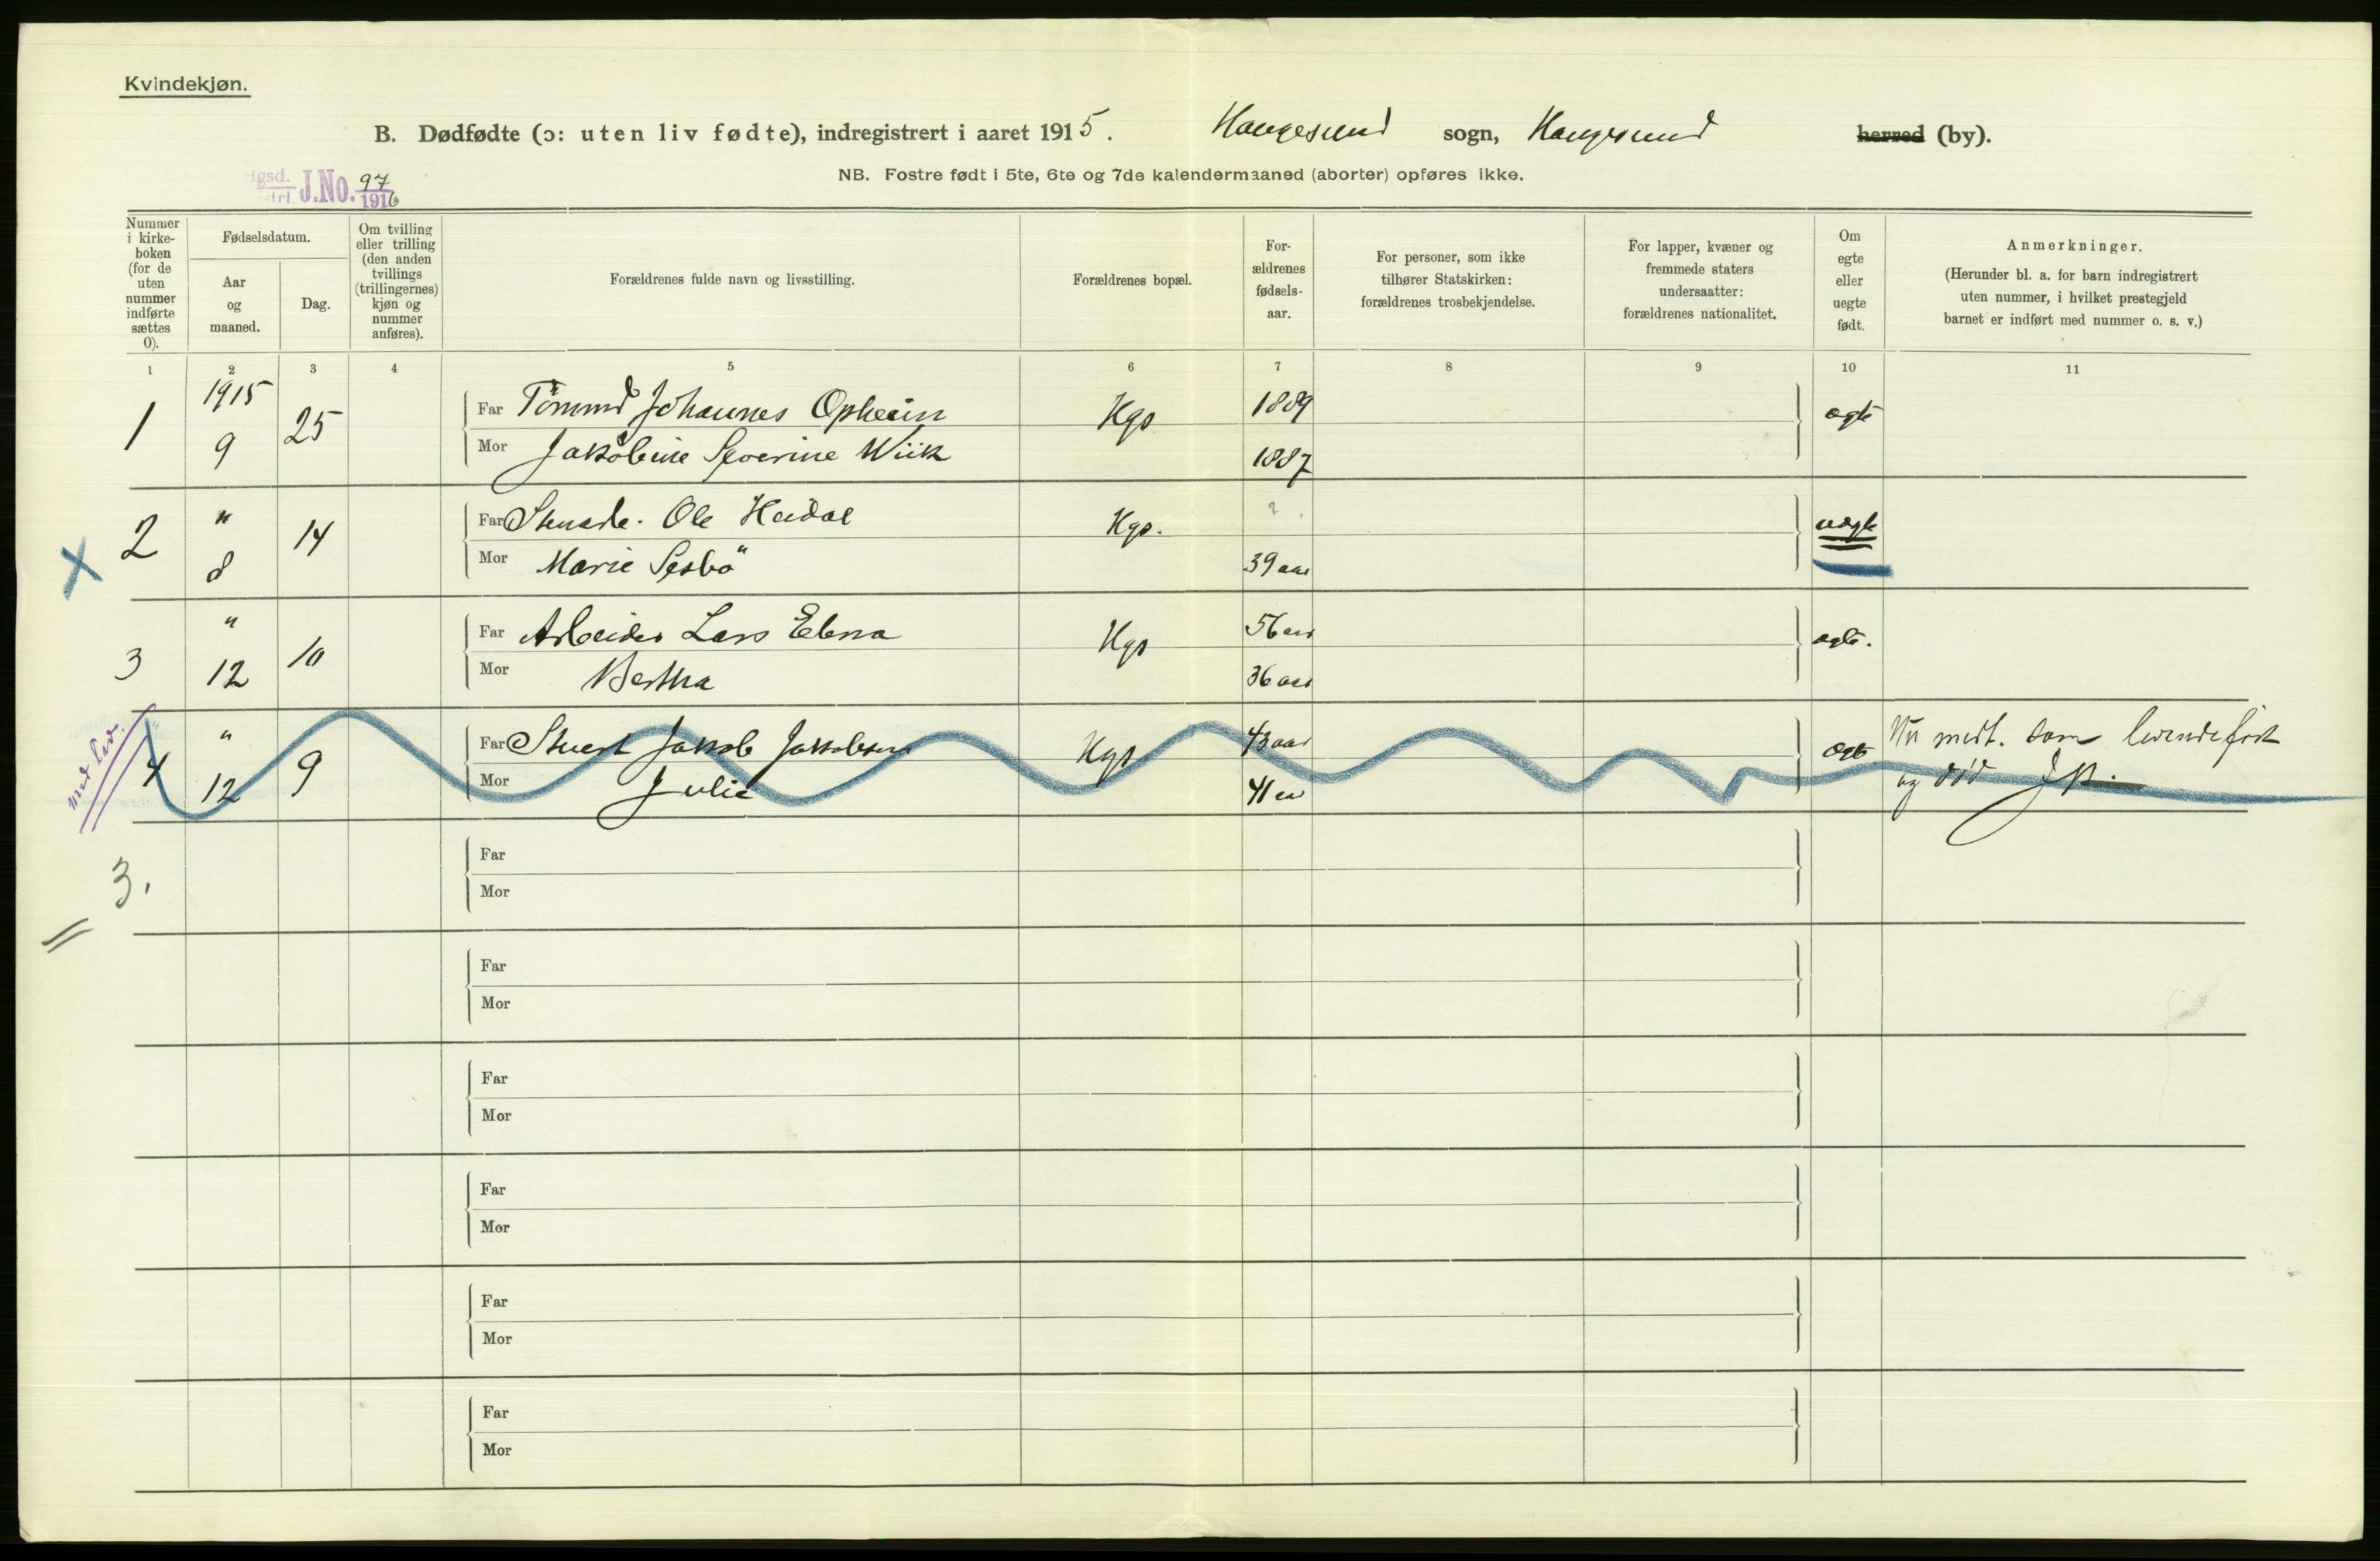 Kvindekjøn.
B. Dødfødte (ɔ: uten liv fødte), indregistrert i aaret 1915. Haugesund sogn, Haugesund herred (by).
J.No. 97
1916
NB. Fostre født i 5te, 6te og 7de kalendermaaned (aborter) opføres ikke.
Nummer i kirke-boken (for de uten nummer indførte sættes 0).
Fødselsdatum.
Aar og maaned.
Dag.
Om tvilling eller trilling (den anden tvillings (trillingernes) kjøn og nummer anføres).
Forældrenes fulde navn og livsstilling.
Forældrenes bopæl.
For-ældrenes fødsels-aar.
For personer, som ikke tilhører Statskirken: forældrenes trosbekjendelse.
For lapper, kvæner og fremmede staters undersaatter: forældrenes nationalitet.
Om egte eller uegte født.
Anmerkninger.
(Herunder bl. a. for barn indregistrert uten nummer, i hvilket prestegjeld barnet er indført med nummer o. s. v.)
1 2 3 4 5 6 7 8 9 10 11
1 1915 9 25 Far Tömmd Johannes Opheim Hgs 1889 egte
Mor Jakobine Severine Wiik 1887
2 " 8 14 Far Ole Heidal Hgs. ? uegte
Mor Marie Sesbö 39 aar
3 " 12 10 Far Arbeider Lars Hgs 56 aar egte.
Mor Bertha 36 aar
4 " 12 9 Far Stuert Jakob Jakobsen Hgs 43 aar egte Nu medt. som levendefødt
Mor Julie 41 aar og død
3.
Far
Mor
Far
Mor
Far
Mor
Far
Mor
Far
Mor
Far
Mor